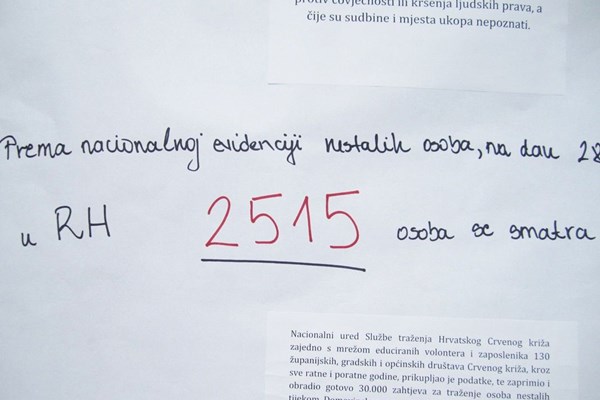 protiv čovječnosti ili kršenja ljudskih prava, a
čije su sudbine i mjesta ukopa nepoznati.
Prema nacionalnoj evidenciji nestalih osoba, na dan 28
u RH 2515 osoba se smatra
Nacionalni ured Službe traženja Hrvatskog Crvenog križa
zajedno s mrežom educiranih volontera i zaposlenika 130
županijskih, gradskih i općinskih društava Crvenog križa, kroz
sve ratne i poratne godine, prikupljao je podatke, te zaprimio i
obradio gotovo 30.000 zahtjeva za traženje osoba nestalih
tijekom